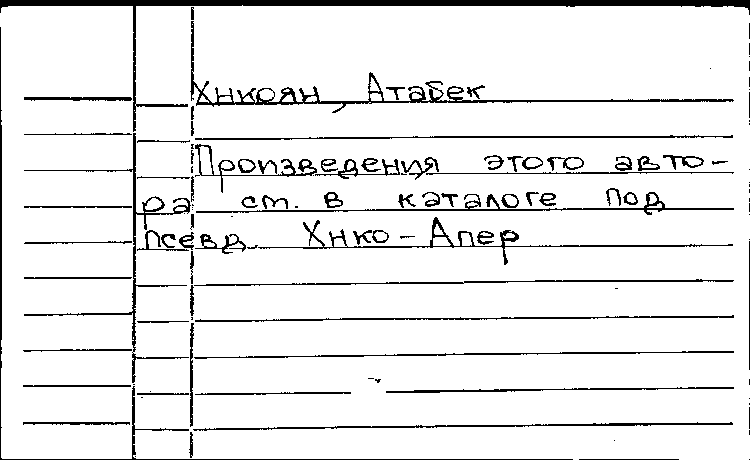 Хнкоян, Атабек
Произведения этого авто-
ра см. в каталоге под
псевд. Хнко-Апер